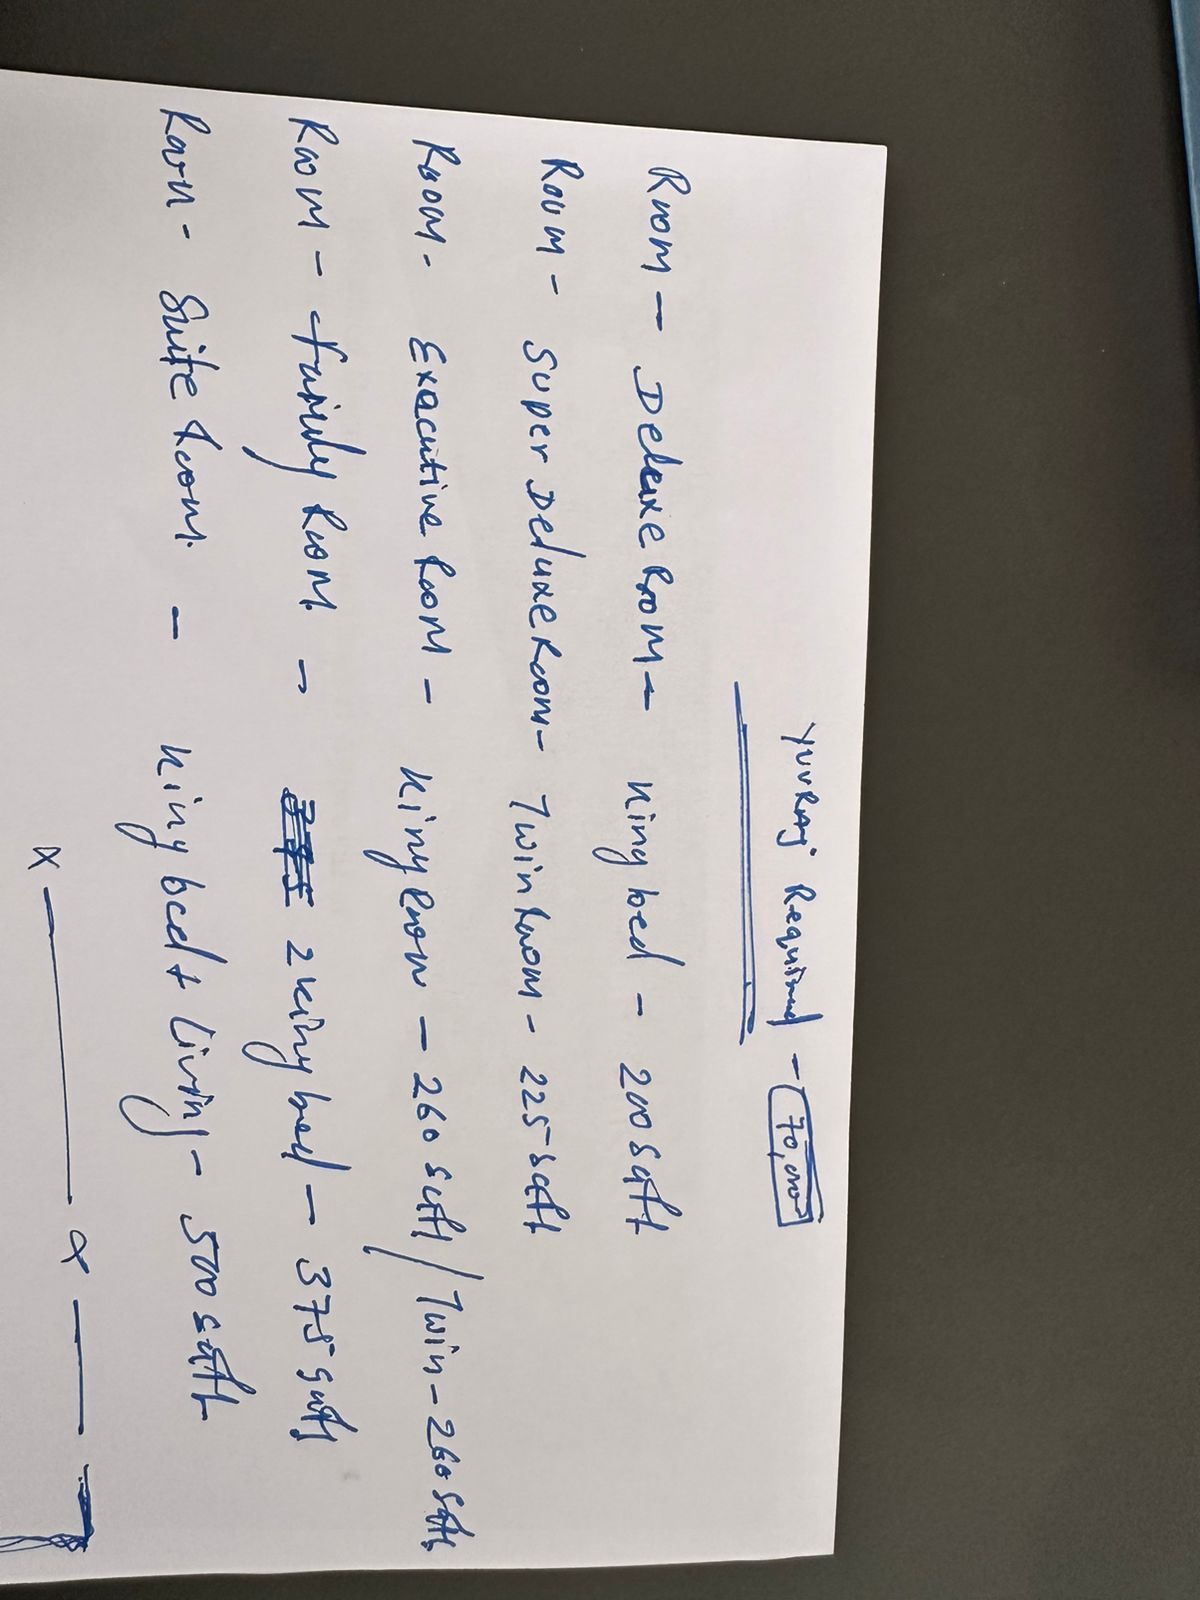 YUVRAJ Required - 70,000
Room - Deluxe Room - King bed - 200 Sqft
Room - Super Deluxe Room - Twin Room - 225 Sqft
Room - Executive Room - King Room - 260 Sqft / Twin - 260 Sqft
Room - Family Room - 2 King bed - 375 Sqft
Room - Suite Room - King bed + Living - 500 Sqft